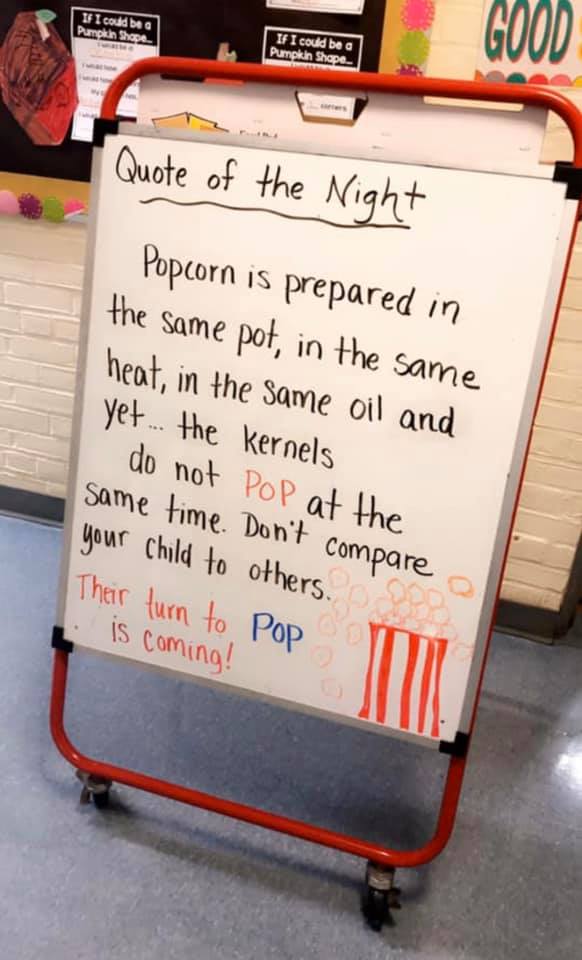 If I could be a
Pumpkin Shape...
If I could be a
Pumpkin Shape...
GOOD
corners
Quote of the Night
Popcorn is prepared in
the same pot, in the same
heat, in the same oil and
yet... the kernels
do not POP at the
same time. Don't compare
your child to others.
Their turn to POP
is coming!